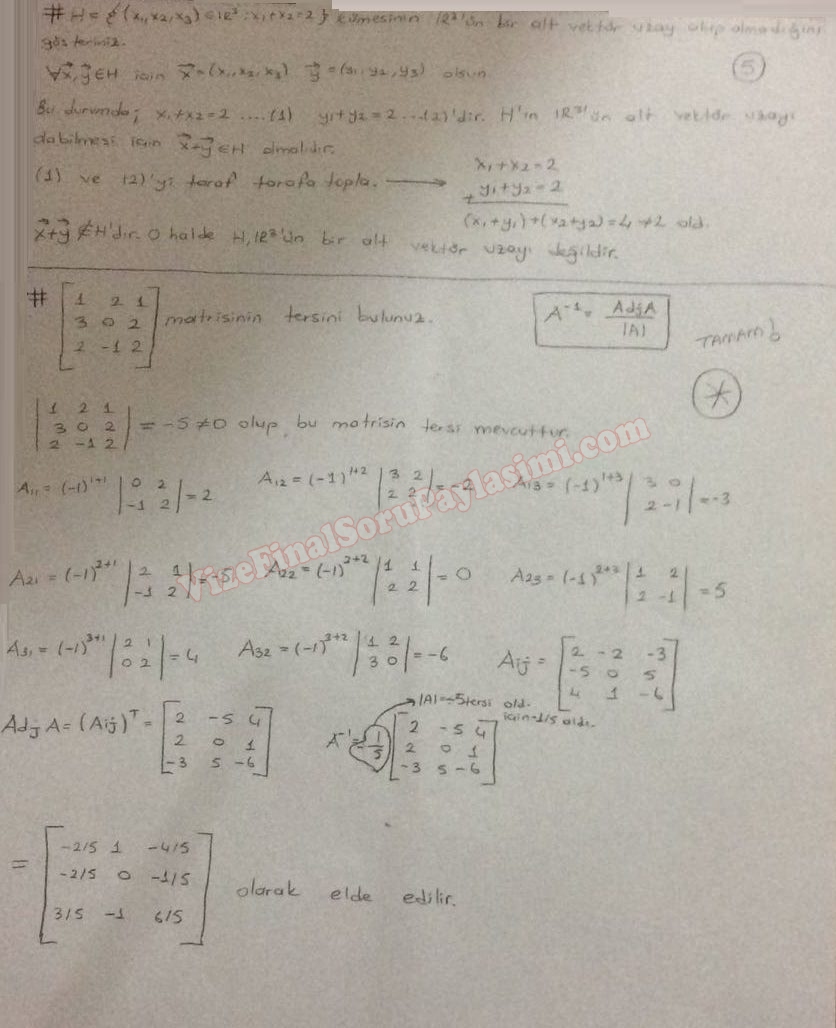 # H = {(x₁,x₂,x₃)∈IR³ : x₁+x₂=2} kümesinin IR³'ün bir alt vektör uzay olup olmadığını
gösteriniz.
∀x⃗,y⃗∈H için x⃗=(x₁,x₂,x₃) y⃗=(y₁,y₂,y₃) olsun. (5)
Bu durumda; x₁+x₂=2 ....(1) y₁+y₂=2...(2)'dir. H'ın IR³'ün alt vektör uzayı
olabilmesi için x⃗+y⃗∈H olmalıdır.
(1) ve (2)'yi taraf tarafa topla. ⟶ x₁+x₂=2
+ y₁+y₂=2
(x₁+y₁)+(x₂+y₂)=4≠2 old.
x⃗+y⃗∉H'dır. O halde H, IR³'ün bir alt vektör uzayı değildir.
# [1 2 1
3 0 2
2 -1 2] matrisinin tersini bulunuz. A⁻¹ = AdjA / |A|
TAMAM!
*
|1 2 1
3 0 2
2 -1 2| = -5≠0 olup, bu matrisin tersi mevcuttur.
A₁₁ = (-1)¹⁺¹ |0 2; -1 2| = 2 A₁₂ = (-1)¹⁺² |3 2; 2 2| = -2 A₁₃ = (-1)¹⁺³ |3 0; 2 -1| = -3
VizeFinalSoruPaylasimi.com
A₂₁ = (-1)²⁺¹ |2 1; -1 2| = -5 A₂₂ = (-1)²⁺² |1 1; 2 2| = 0 A₂₃ = (-1)²⁺³ |1 2; 2 -1| = 5
A₃₁ = (-1)³⁺¹ |2 1; 0 2| = 4 A₃₂ = (-1)³⁺² |1 2; 3 0| = -6 Aij = [2 -2 -3
-5 0 5
4 1 -6]
Adj A = (Aij)ᵀ = [2 -5 4
2 0 1
-3 5 -6]
|A|=-5 tersi old.
için -1/5 aldı.
A⁻¹ = -1/5 [2 -5 4
2 0 1
-3 5 -6]
= [-2/5 1 -4/5
-2/5 0 -1/5
3/5 -1 6/5] olarak elde edilir.